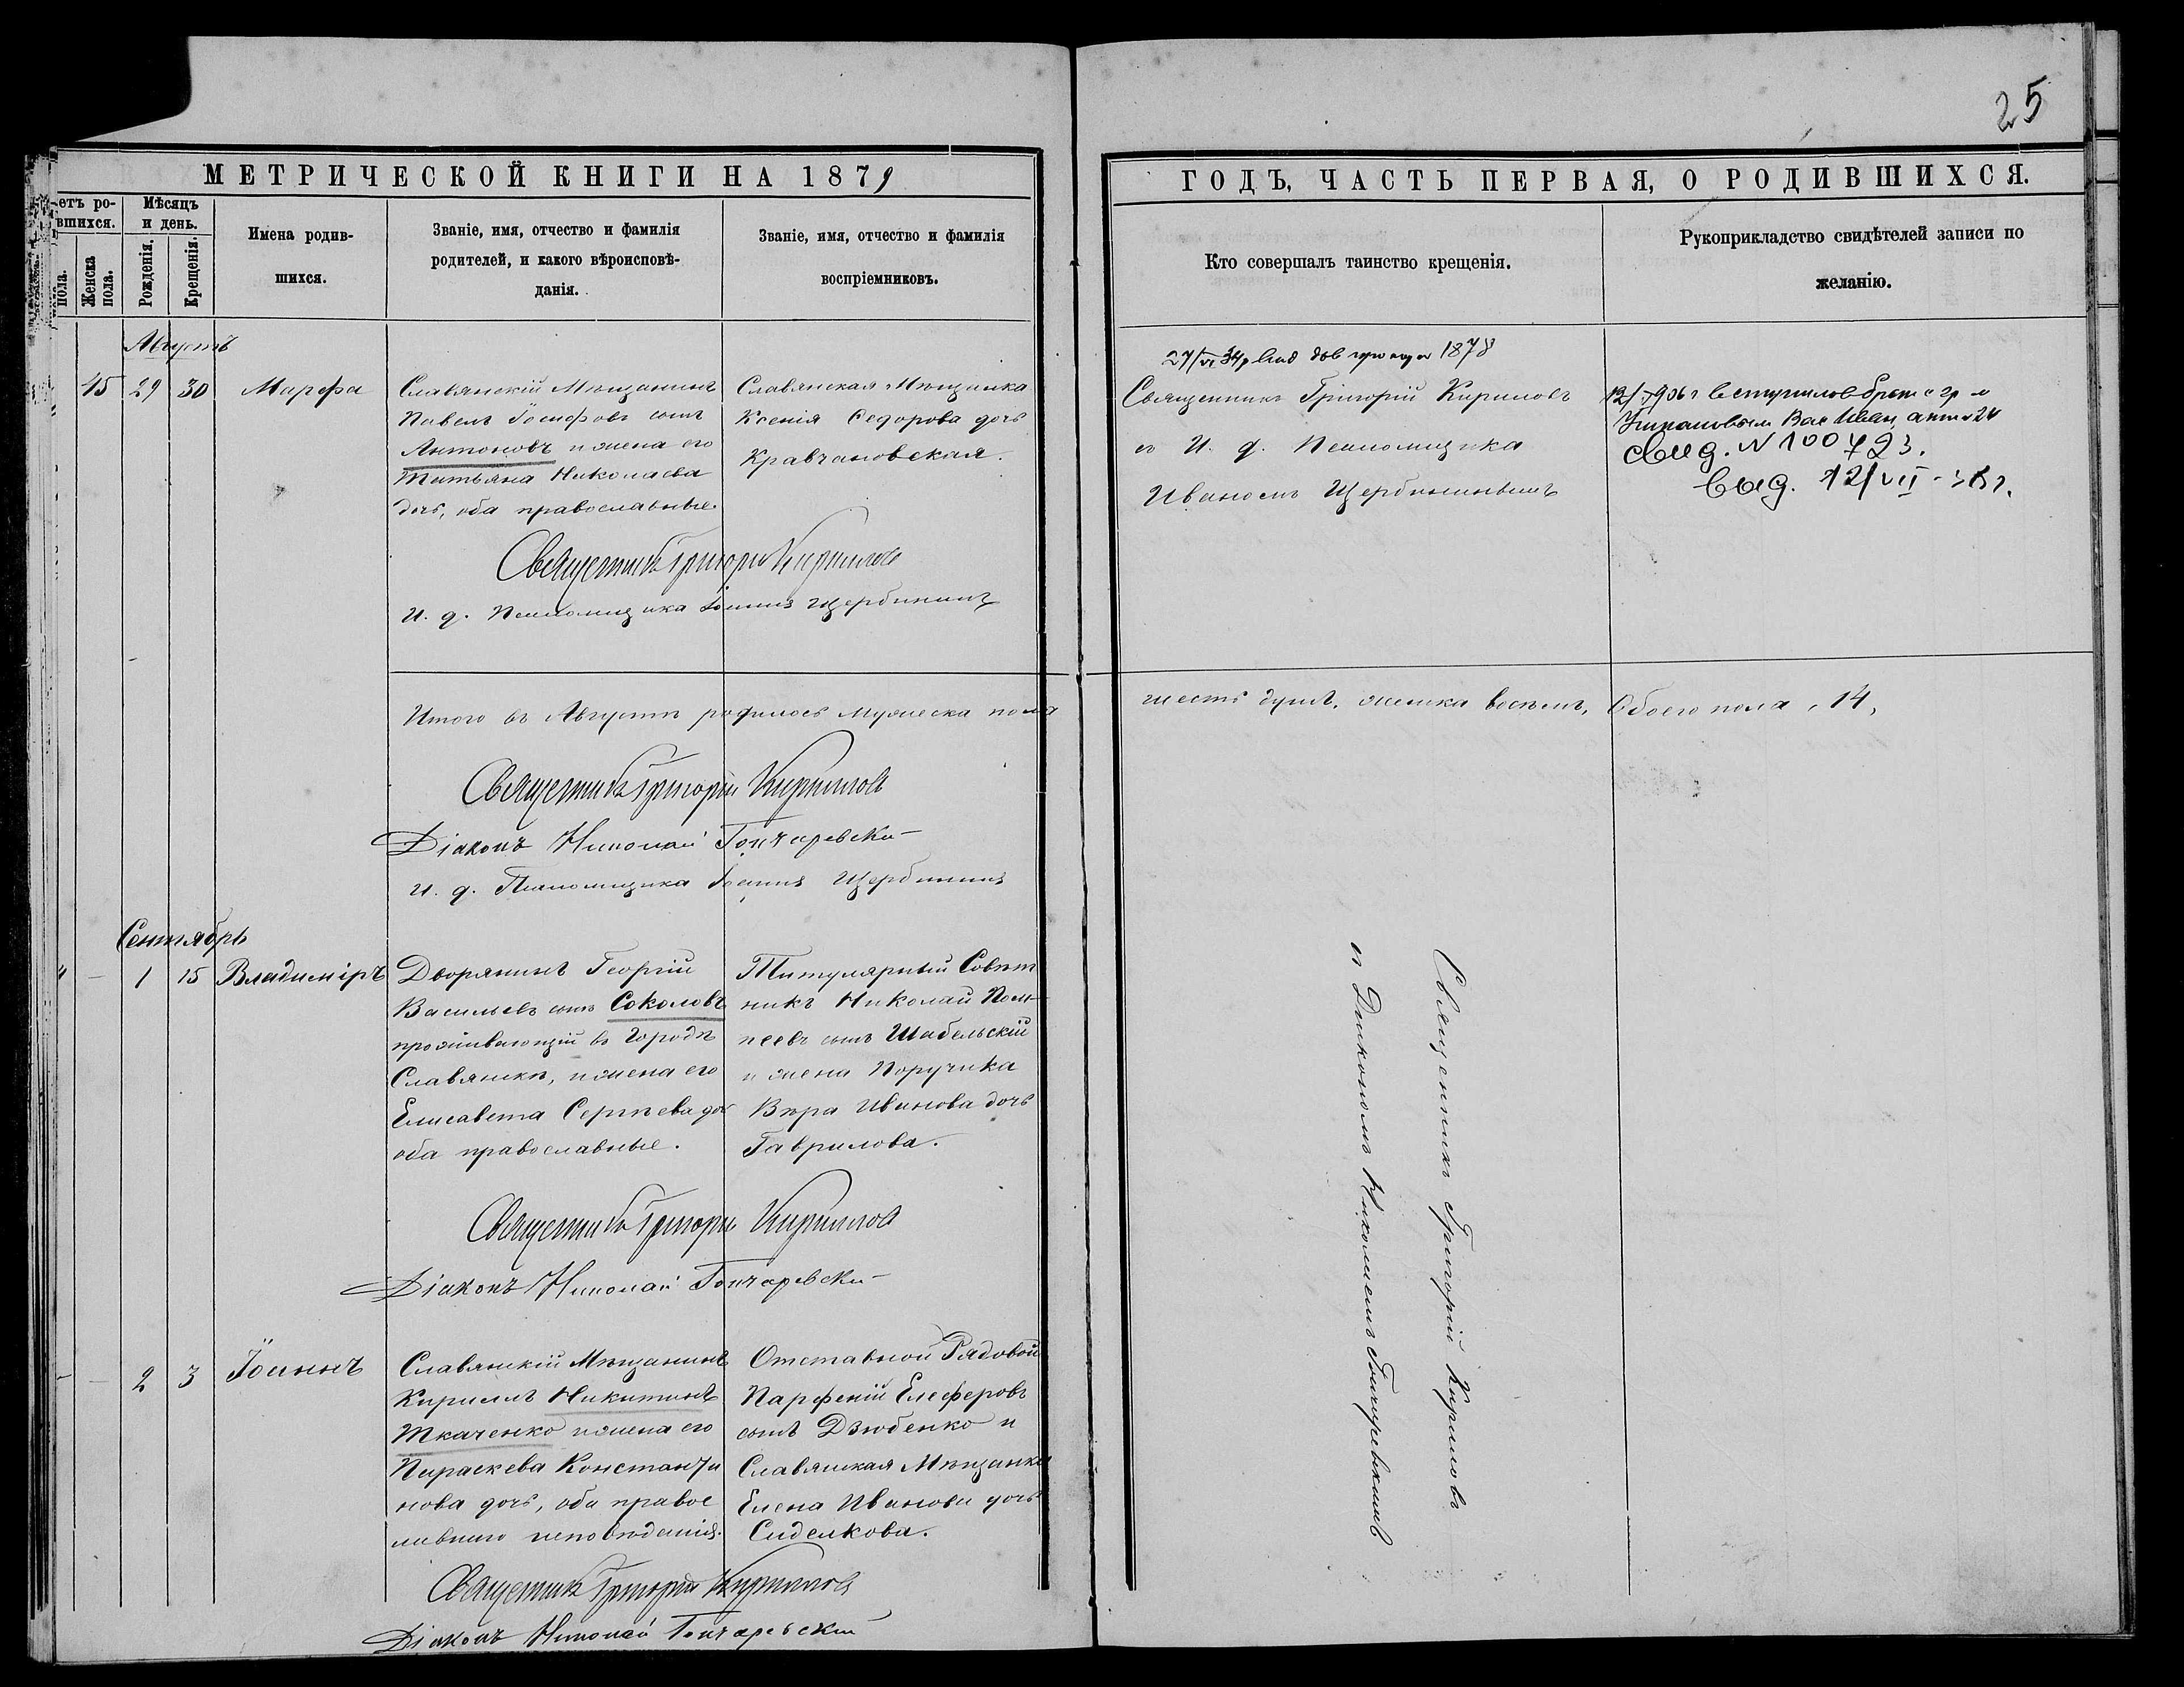 25
МЕТРИЧЕСКОЙ КНИГИ НА 1879
ГОДЪ, ЧАСТЬ ПЕРВАЯ, О РОДИВШИХСЯ.
етъ ро-
вшихся.
пола.
Женска
пола.
Мѣсяцъ
и день.
Рожденія.
Крещенія.
Имена родив-
шихся.
Званіе, имя, отчество и фамилія
родителей, и какого вѣроисповѣ-
данія.
Званіе, имя, отчество и фамилія
воспріемниковъ.
Кто совершалъ таинство крещенія.
Рукоприкладство свидѣтелей записи по
желанію.
Августъ
15 29 30 Марфа
Славянскій Мѣщанинъ
Павелъ Іосифовъ сынъ
Антоновъ и жена его
Татьяна Николаева
дочь, оба православные.
Славянская Мѣщанка
Ксенія Федорова дочь
Кравчановская.
1878
Священникъ Григорій Кириловъ
съ И. д. Псаломщика
Иваномъ Щербининымъ
свид. N 100423.
выд. 12/VII
Священникъ Григорій Кириловъ
И. д. Псаломщика Іоаннъ Щербининъ
Итого въ Августѣ родилось мужеска пола
шесть душъ, женска восемь, Обоего пола, 14,
Священникъ Григорій Кириловъ
Діаконъ Николай Гончаревскій
И. д. Псаломщика Іоаннъ Щербининъ
Сентябрь
1 15 Владиміръ
Дворянинъ Георгій
Васильевъ сынъ Соколовъ
проживающій въ городѣ
Славянскѣ, и жена его
Елисавета Сергѣева доч
оба православные.
Титулярный Совѣт
никъ Николай Пом-
пеевъ сынъ Шабельскій
и жена Поручика
Вѣра Иванова дочь
Гаврилова.
Священникъ Григорій Кириловъ
съ Діакономъ Николаемъ Гончаревскимъ
Священникъ Григорій Кириловъ
Діаконъ Николай Гончаревскій
2 3 Іоаннъ
Славянскій Мѣщанинъ
Кириллъ Никитинъ
Ткаченко и жена его
Параскева Константи
нова дочь, оба правос
лавнаго исповѣданія.
Отставной Рядовой
Парфеній Елеферовъ
сынъ Дзюбенко и
Славянская Мѣщанка
Елена Иванова дочь
Сиделкова.
Священникъ Григорій Кириловъ
Діаконъ Николай Гончаревскій